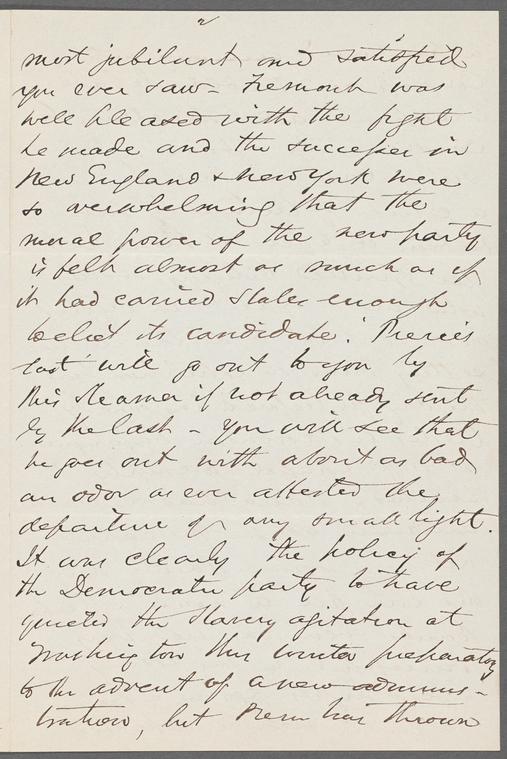 2
most jubilant and satisfied
you ever saw - Fremont was
well pleased with the fight
he made and the successes in
New England & New York were
so overwhelming that the
moral power of the new party
is felt almost as much as if
it had carried States enough
to elect its candidate. Pierce's
last will go out to you by
this steamer if not already sent
by the last - You will see that
he goes out with about as bad
an odor as ever attested the
departure of any small light.
It was clearly the policy of
the Democratic party to have
quieted the Slavery agitation at
Washington this winter preparatory
to the advent of a new adminis-
tration, but Pierce has thrown